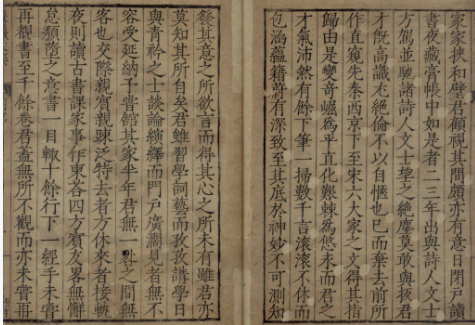 家家挾和璧君顧視其間頗亦有意日閉戶讀
書夜藏膏帳中如是者二三年出與詩人文士
方駕並馳諸詩人文士望之絶塵莫敢與㧞君
才旣高識尤絶倫不以自愜也已而棄去前所
作直窺先秦西京下至宋六大家之文得其指
歸由是變奇崛爲平直化艱棘爲悠永而君之
才氣沛然有餘下筆一掃數千言滚滚不休而
包涵蘊籍蔚有深致至其底於神妙不可測知
發其意之所欲言而得其心之所未有雖君亦
莫知其所自矣君雖習學詞藝而孜孜講學日
與青衿之士談論演繹而門戶廣濶見者無不
容受延納予嘗館其家半年君無一㪯之間無
客也交際親賓親踈泛特去者方休來者接軫
夜則讀古書課家事作東荅四方賓友畧無懈
怠頽墮之意書一目輙十餘行下一經手未嘗
再觀書至千餘卷君葢無所不觀而亦未嘗再